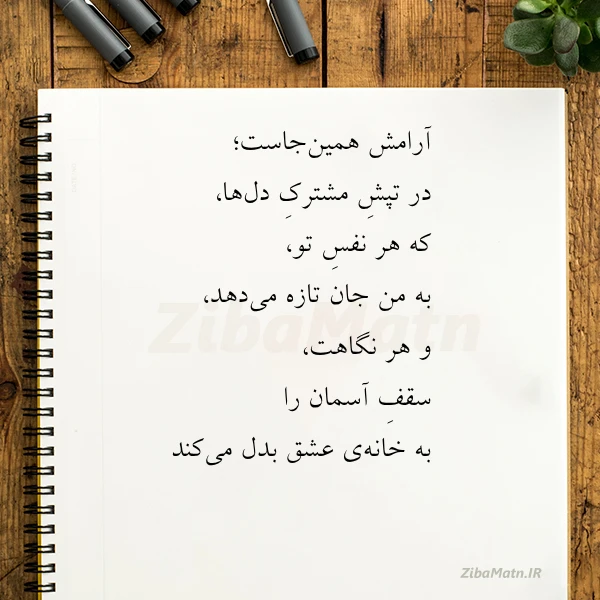 آرامش همین‌جاست؛
در تپشِ مشترکِ دل‌ها،
که هر نفسِ تو،
به من جان تازه می‌دهد،
و هر نگاهت،
سقفِ آسمان را
به خانه‌ی عشق بدل می‌کند
ZibaMatn
ZibaMatn.IR